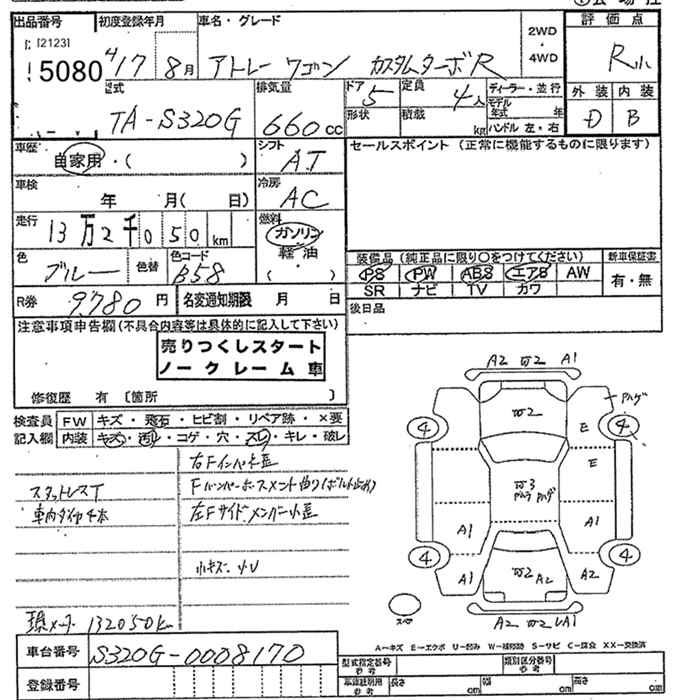 出品番号 初度登録年月 車名・グレード 評価点
[2123]
5080 H17 8月 アトレーワゴン カスタムターボR 2WD ・ 4WD R
型式 排気量 ドア 5 定員 4人 ディーラー・並行 外装 内装
TA-S320G 660cc 形状 積載 kg モデル年式 年 D B
ハンドル 左・右
車歴 自家用・( ) シフト AT セールスポイント (正常に機能するものに限ります)
車検 年 月( 日) 冷房 AC
走行 13万2千050km 燃料 ガソリン 軽油 ( )
色 ブルー 色替 色コード B58 装備品 (純正品に限り〇をつけてください) 新車保証書
PS PW ABS エアB AW 有・無
SR ナビ TV カワ
R券 9780円 名変通知期限 月 日 後日品
注意事項申告欄(不具合内容等は具体的に記入して下さい)
売りつくしスタート
ノークレーム車
修復歴 有 [箇所
検査員 FW キズ・飛石・ヒビ割・リペア跡・×要
記入欄 内装 キズ・汚れ・コゲ・穴・スレ・キレ・破レ
右Fインパネ歪
スタットレスT Fバンパーホースメント曲り(ボルト止め)
車内タイヤ4本 左Fサイドメンバー小歪
小キズ・小U
現メーター 132050k
A2 W2 A1
W2 ハゲ
4 E 4
E
W3
ハゲ
A1 A1
4 4
A1 W2 A2 A2
スペア
A2 W2 UA1
A-キズ E-エクボ U-凹み W-補修跡 S-サビ C-腐食 XX-交換済
車台番号 S320G-0008170 型式指定番号 類別区分番号
参考 参考
登録番号 車庫証明用 長さ cm 幅 cm 高さ cm
参考